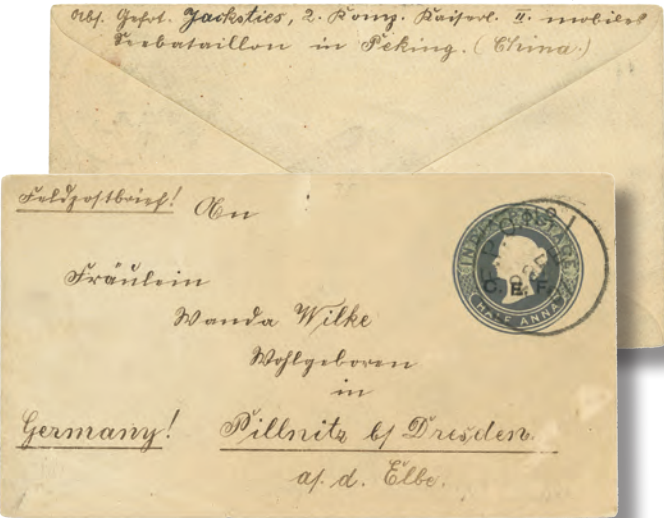 Abs. Gefrt. Jacksties, 2. Komp. Kaiserl. II. mobiles
Seebataillon in Peking. (China.)
Feldpostbrief! An
Fräulein
Wanda Wilke
Wohlgeboren
in
Germany! Pillnitz b/ Dresden.
a/. d. Elbe.
INDIA POSTAGE
C. E. F.
HALF ANNA
F.P.O. No 1